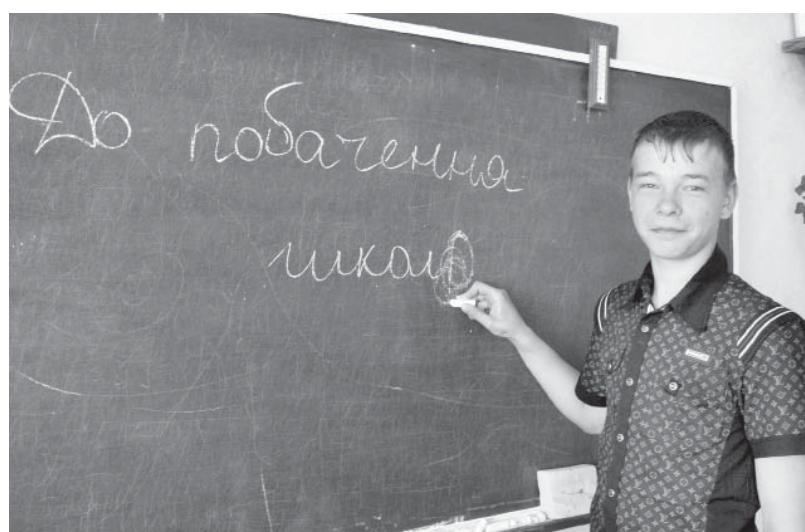 До побачення
школ